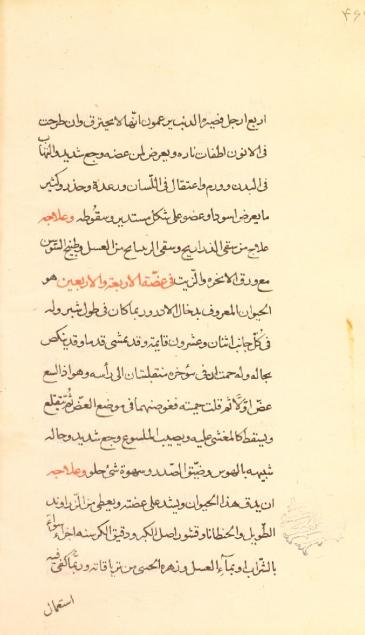 اربع ارجل قصيرة الذنب يزعمون انّها لا يحترق وان طرحت
فى الاتون لطفات ناره ويعرض لمن عضه وجع شديد والتهاب
فى البدن وورم واعتقال فى اللّسان ورعدة وخدر وكثير
ما يعرض اسوداد عضو على شكل مستدير وسقوطه وعلاجه
علاج من سقى الذراريح وسقى الراتيانج مع العسل وطبيخ السّوسن
مع ورق الانجره والزّيت فى عضّة الاربعة والاربعين هو
الحيوان المعروف بدخال الاذن وربما كان فى طول شبر وله
فى كلّ جانب اثنان وعشرون قايمة وقد يمشى قدما وقد ينكص
بحاله وله حمتان فى مؤخره منقلبتان الى رأسه وهو اذا لسع
عضّ اوّلا ثم قلب حمته فغوصهما فى موضع العضّ ثم ينقلع
ويسقط كالمغشى عليه ويصيب الملسوع وجع شديد وحاله
شبيهه بالهوس وضيق الصّدر وشهوة شئ حلو وعلاجه
ان يدق هذا الحيوان ويشد على عضته ويعطى من الزّراوند
الطّويل والجنطيانا وقشور اصل الكبر ودقيق الكرسنه اجزاء سواء
بالشّراب او بماء العسل وزهره الخنثى من ترياقاته وربّما كفى فيه
استعمال